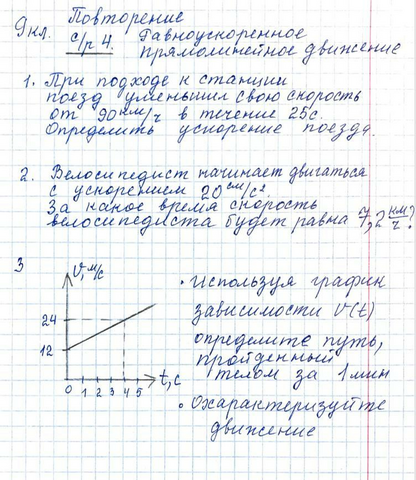 9 кл. Повторение
с/р 4. Равноускоренное
прямолинейное движение
1. При подходе к станции
поезд уменьшил свою скорость
от 90 км/ч в течение 25с.
Определить ускорение поезда.
2. Велосипедист начинает двигаться
с ускорением 20 см/с²
За какое время скорость
велосипедиста будет равна 7,2 км/ч?
3
V, м/с
24
12
0 1 2 3 4 5 t, с
• Используя график
зависимости V(t)
определите путь,
пройденный
телом за 1 мин
• Охарактеризуйте
движение